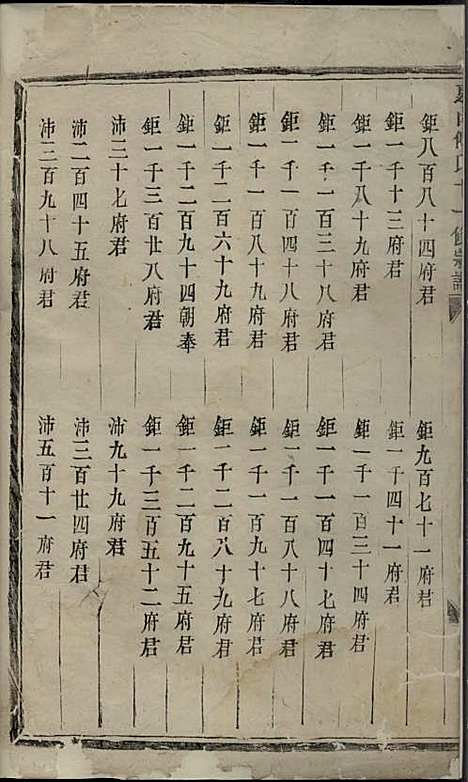 鉅八百八十四府君
鉅九百七十一府君
鉅一千十三府君
鉅一千四十一府君
鉅一千八十九府君
鉅一千一百三十四府君
鉅一千一百三十八府君
鉅一千一百四十七府君
鉅一千一百四十八府君
鉅一千一百八十八府君
鉅一千一百八十九府君
鉅一千一百九十七府君
鉅一千二百六十九府君
鉅一千二百八十九府君
鉅一千二百九十四朝奉
鉅一千二百九十五府君
鉅一千三百廿八府君
鉅一千三百五十二府君
沛三十七府君
沛九十九府君
沛二百四十五府君
沛三百廿四府君
沛三百九十八府君
沛五百十一府君